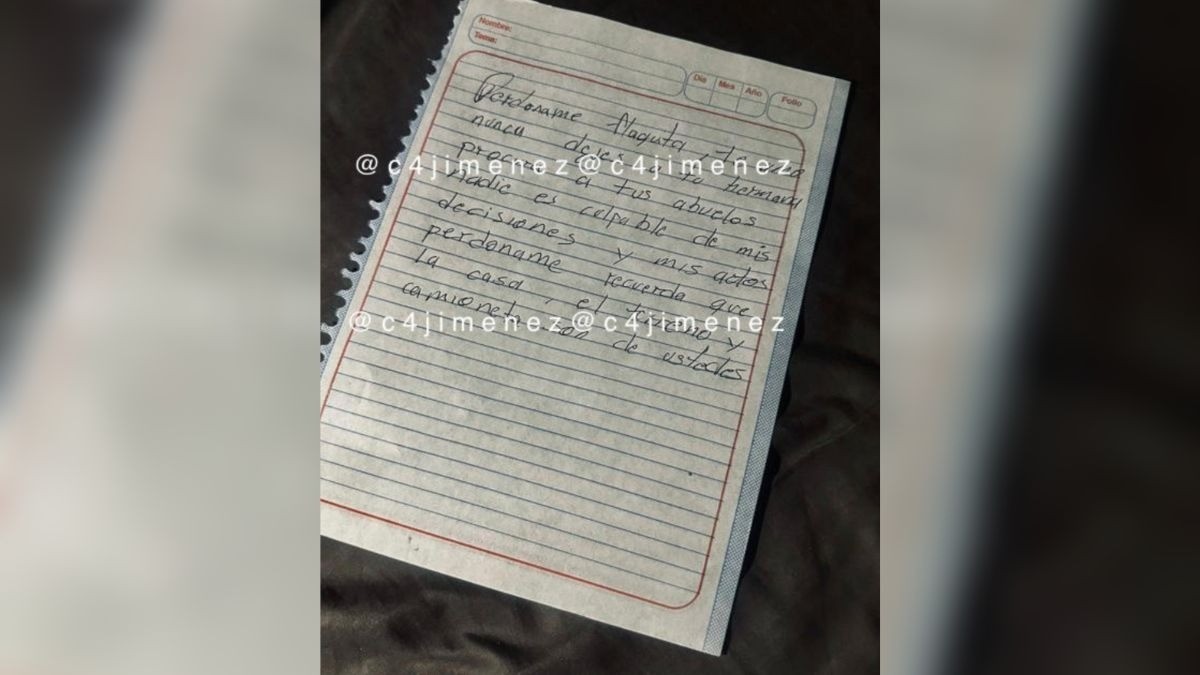 Nombre:
Tema:
Día Mes Año Folio
Perdoname flaquita,
nunca dejes a tu hermana
@c4jimenez@c4jimenez
a tus abuelos
Nadie es culpable de mis
decisiones y mis actos
perdoname recuerda que
la casa, el terreno y
@c4jimenez@c4jimenez
camioneta son de ustedes